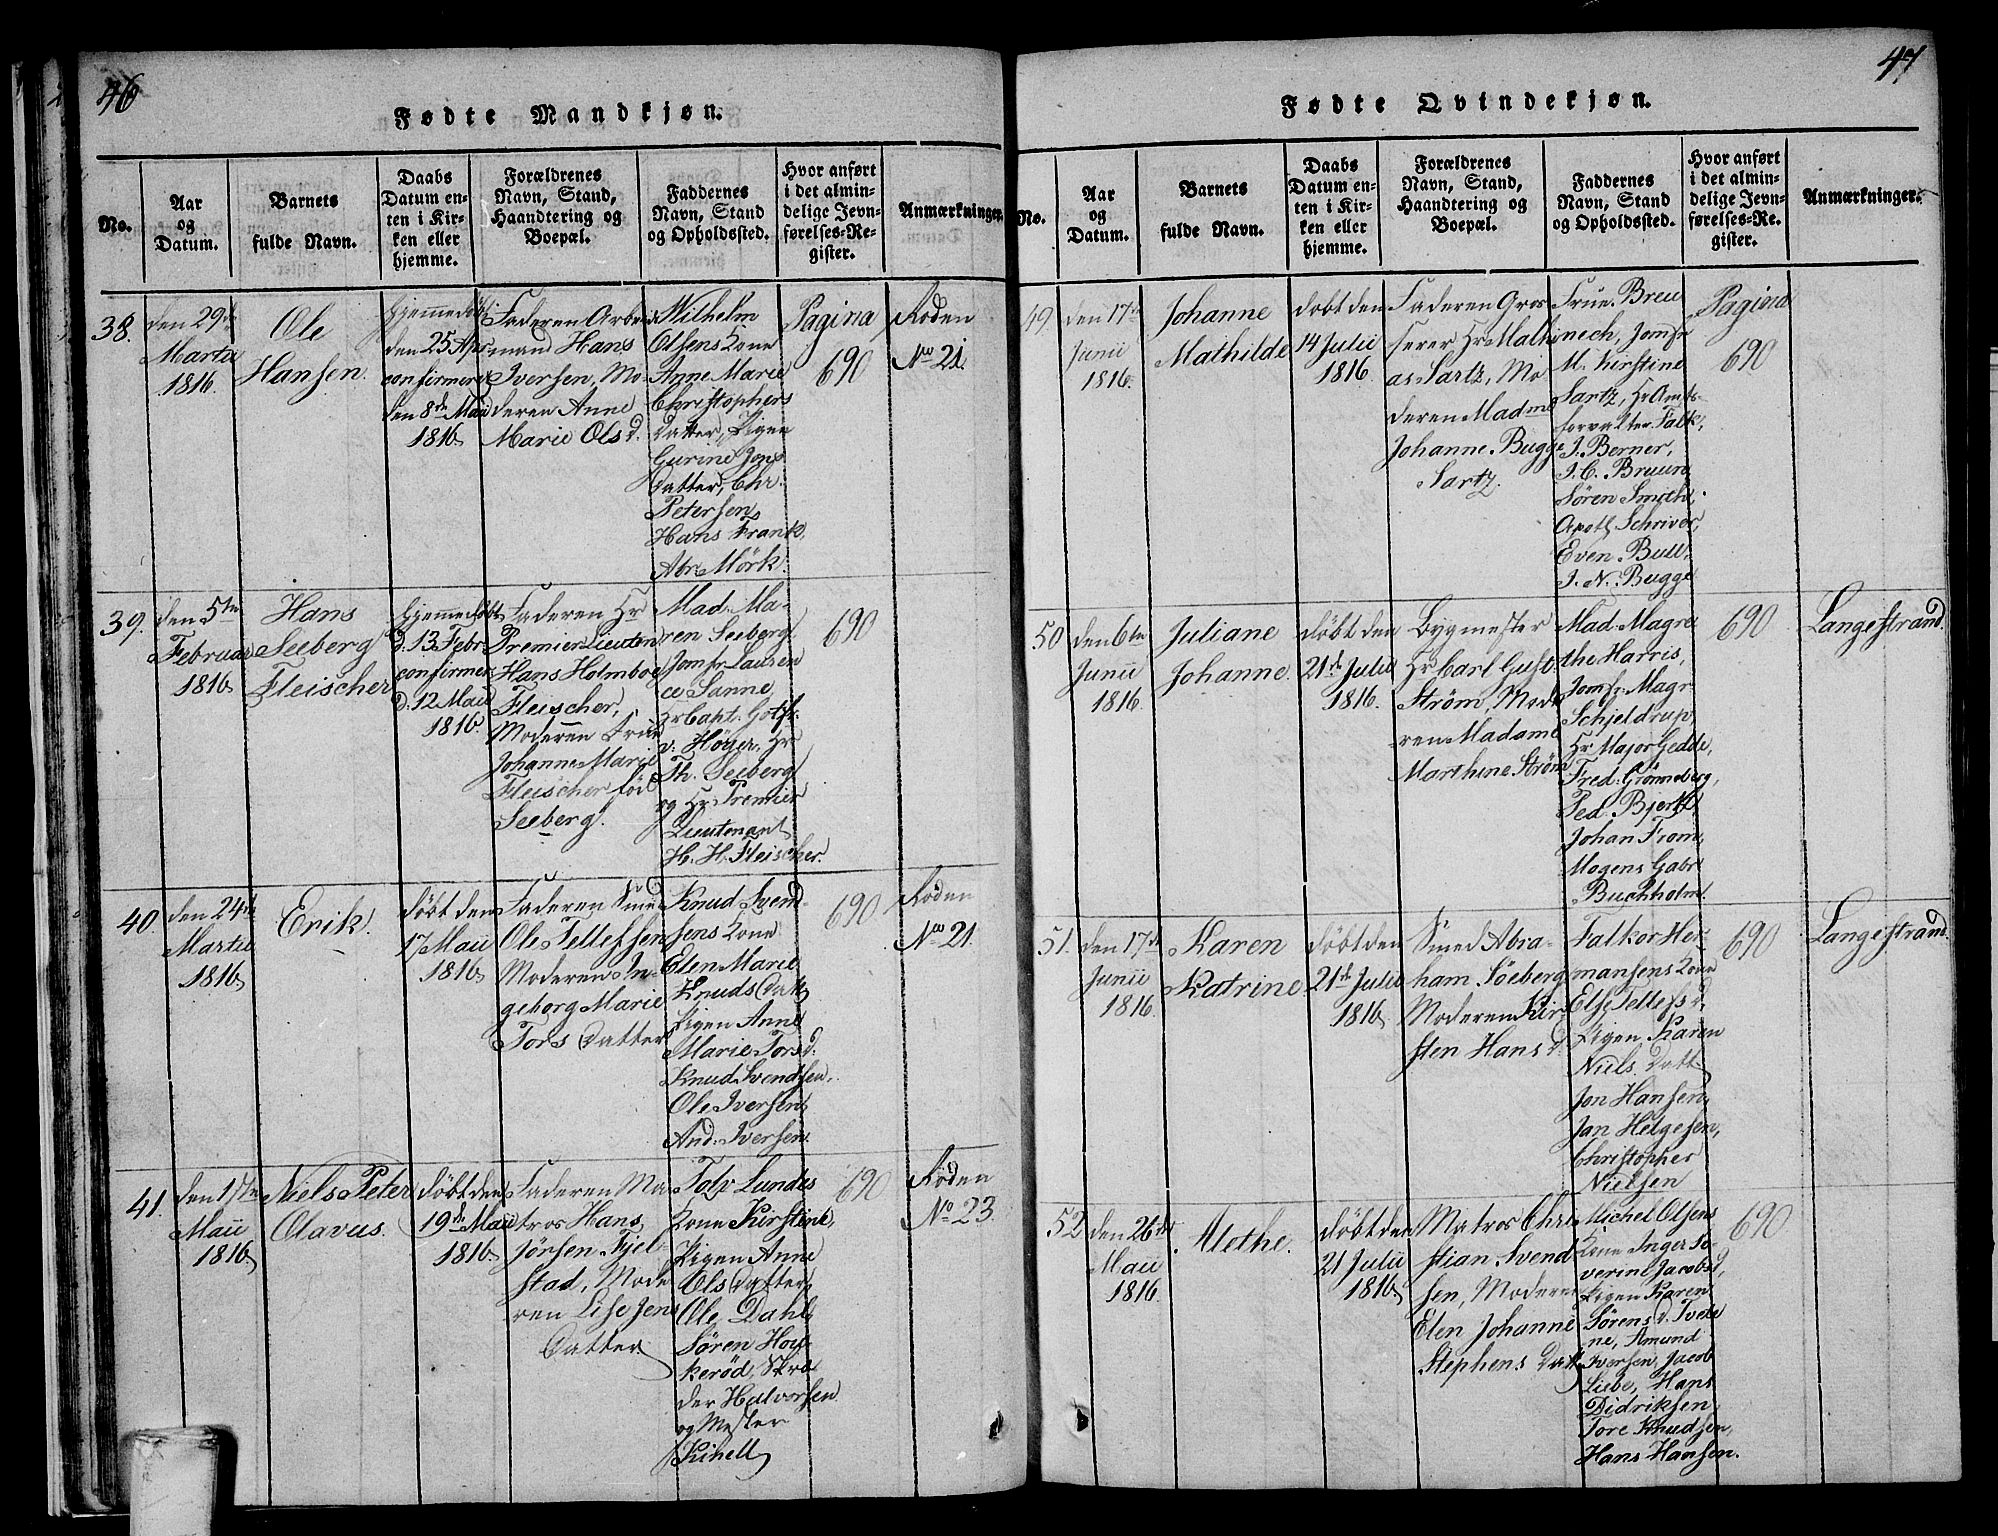 46
Fødte Mandkjøn.
No.
Aar
og
Datum.
Barnets
fulde Navn.
Daabs
Datum en-
ten i Kir-
ken eller
hjemme.
Forældrenes
Navn, Stand,
Haandtering og
Boepæl.
Faddernes
Navn, Stand
og Opholdssted.
Hvor anført
i det almin-
delige Jevn-
førelses-Re-
gister.
Anmærkninger.
38.
den 29de
Martii
1816.
Ole
Hansen.
Hjemmedøbt
den 25 Apr
confirmeret
den 8de Maii
1816
Faderen Arbeids
mand Hans
Iversen, Mo-
deren Anne
Marie Olsd.
Wilhelm
Olsens Kone
Anne Marie
Christophers
Datter, Pigen
Gurine Jons
Datter, Chr.
Petersen,
Hans Frank,
Abr. Mörk.
Pagina
690
Roden
No 21.
39.
den 5te
Februar
1816
Hans
Seeberg
Fleischer
Hjemmedøbt
d. 13 Febr
confirmer
d. 12 Maii
1816.
Faderen Hr
Premier Lieuten
Hans Holmboe
Fleischer,
Moderen Frue
Johanne Marie
Fleischer föd
Seeberg.
Mad. Ma-
ren Seeberg.
Jomfr Lausen
ce Sanne,
Hr Capt. Gotfr.
v. Höyer, Hr
Th. Seeberg
og Hr Premier
Lieutenant
H. H. Fleischer.
690
40.
den 24de
Martii
1816
Erik.
döbt den
17 Maii
1816
Faderen Smed
Ole Tellefsen
Moderen In-
geborg Marie
Tors Datter
Knud Svend-
sens Kone
Elen Marie
Knuds Datt
Pigen Anne
Marie Torsd.
Knud Svendsen,
Ole Iversen,
And. Iversen.
690
Roden
No 21.
41.
den 1ste
Maii
1816
Niels Peter
Olavus.
döbt den
19de Maii
1816
Faderen Ma
tros Hans
Jörsen Fjel-
stad, Mode
ren Lise Jens
Datter.
Tolv Lundes
Kone Kirstine,
Pigen Anne
Ols Datter,
Ole Dahl,
Sören Hoy-
kerød, Skræ
der Halvorsen
og Mester
Kihell
690
Roden
No 23.
47
Fødte Qvindekjøn.
No.
Aar
og
Datum.
Barnets
fulde Navn.
Daabs
Datum en-
ten i Kir-
ken eller
hjemme.
Forældrenes
Navn, Stand,
Haandtering og
Boepæl.
Faddernes
Navn, Stand
og Opholdssted.
Hvor anført
i det almin-
delige Jevn-
førelses-Re-
gister.
Anmærkninger.
49.
den 17de
Junii
1816.
Johanne
Mathilde
döbt den
14 Julii
1816.
Faderen Gros
serer Hr Mathi
as Sartz, Mo
deren Madme
Johanne Bugge
Sartz.
Frue Breu
nech, Jomfr
M. Kirstine
Sartz, Hr Amts-
forvalter Falk,
J. Berner,
J. C. Bruun,
Søren Smith,
Apoth Schriver,
Even Bull,
J. N. Bugge
Pagina
690
50
den 6te
Junii
1816
Juliane
Johanne.
döbt den
21de Julii
1816.
Bygmester
Hr Carl Gust.
Strøm, Mode
ren Madame
Marthine Strøm
Mad. Magre
the Harris,
Jomfr. Magr.
Schjeldrup,
Hr Major Gedde,
Fred. Grönneberg,
Ped. Bjerke,
Johan From,
Mogens Gabr
Buchholm.
690
Langestrand.
51.
den 17de
Junii
1816.
Karen
Katrine.
döbt den
21de Julii
1816
Smed Abra-
ham Söeberg
Moderen Kir-
sten Hans d.
Falkor Her-
mansens Kone
Else Tellefs d.
Pigen Karen
Niels Datt
Jon Hansen,
Jan Helgesen,
Christopher
Nielsen
690
Langestrand.
52
den 26de
Maii
1816.
Alethe.
döbt den
21 Julii
1816
Matros Chri
stian Svend
sen, Moderen
Elen Johanne
Stephens Datt
Michel Olsens
Kone Inger Se-
verine Jacobsd,
Pigen Karen
Sørens d. Tvete
ne, Amund
Iversen, Jacob
Liebe, Hans
Didriksen,
Tore Knudsen,
Hans Hansen.
690